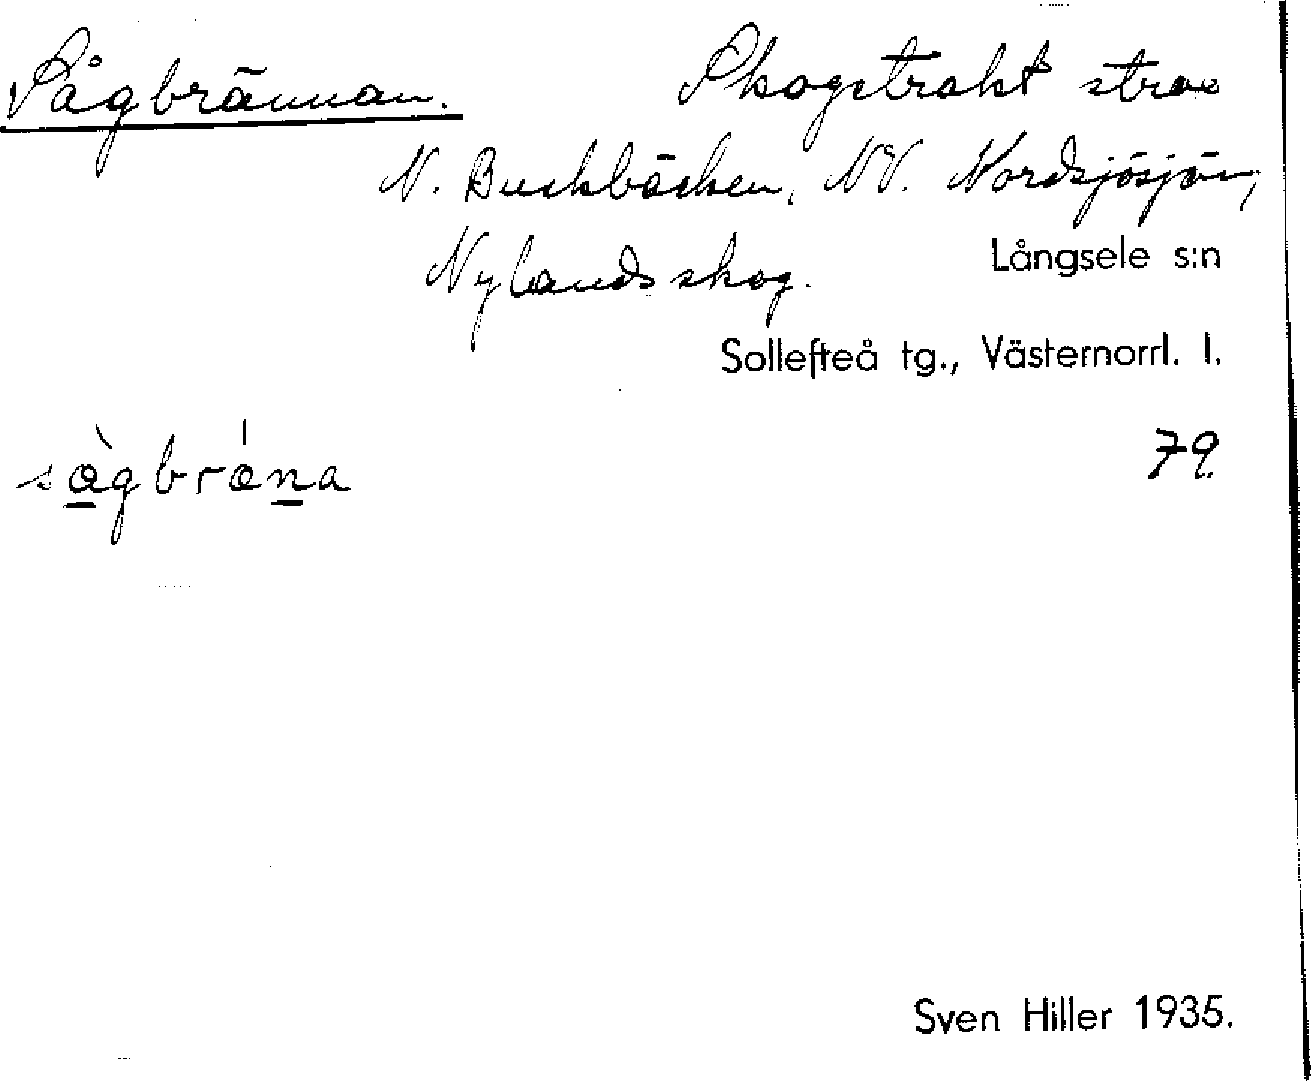 Sågbrännan. Skogstrakt strax
N. Buckbäcken, NV. Nordsjösjön,
Nylandsskog. Långsele s:n
Sollefteå tg., Västernorrl. l.
sàgbrǽna 79.
Sven Hiller 1935.